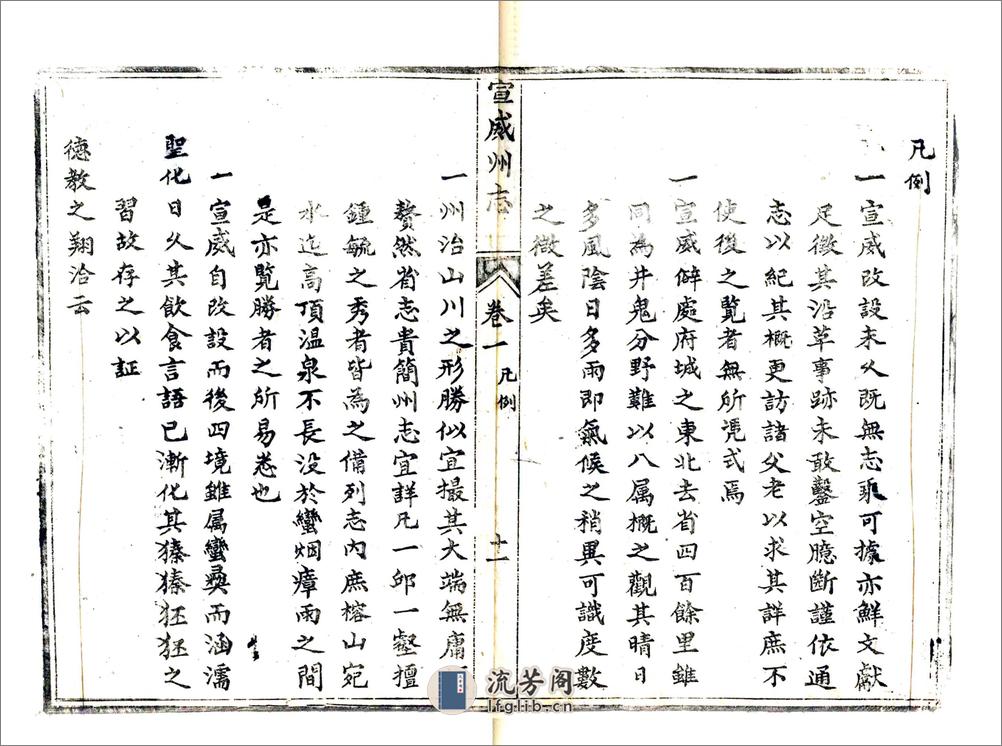 凡例
一宣威改設未久既無志乘可據亦鮮文獻
足徵其沿革事跡未敢鑿空臆斷謹依通
志以紀其概更訪諸父老以求其詳庶不
使後之覽者無所凭式焉
一宣威僻處府城之東北去省四百餘里雖
同為井鬼分野難以八属概之觀其晴日
多風陰日多雨即氣候之稍異可識度數
之微差矣
宣威州志
卷一 凡例
十一
一州治山川之形勝似宜撮其大端無庸
贅然省志貴簡州志宜詳凡一邱一壑擅
鍾毓之秀者皆為之備列志內庶榕山宛
水迄高頂温泉不長没於蠻烟瘴雨之間
是亦覽勝者之所易卷也
一宣威自改設而後四境雖属蠻彝而涵濡
聖化日久其飲食言語已漸化其獉獉狉狉之
習故存之以証
德教之翔洽云
流芳阁
lfglib.cn